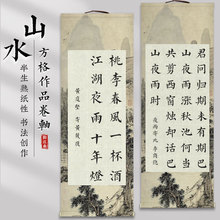 山水
方格作品卷軸
半生熟纸性 书法创作
桃李春風一杯酒
江湖夜雨十年燈
君问归期未有期巴
山夜雨涨秋池何当
共剪西窗烛却话巴
山夜雨时
夜雨寄北 李商隐